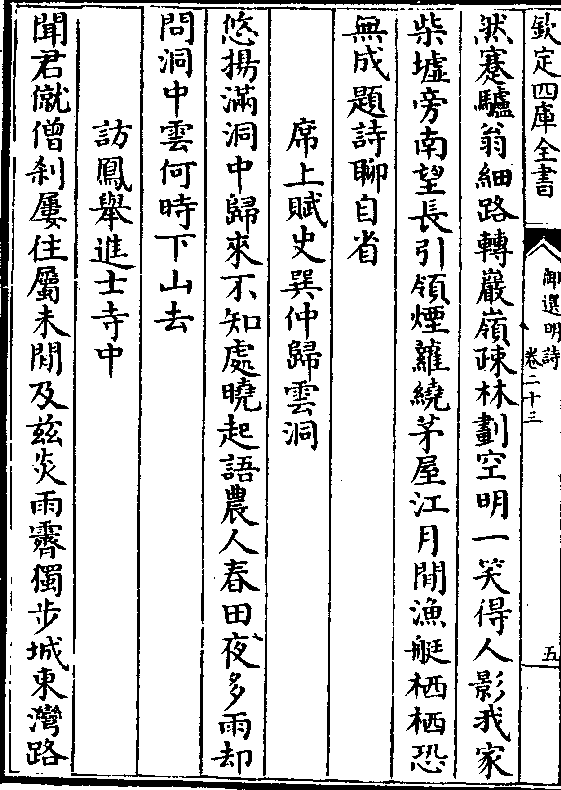 欽定四庫全書
御選明詩
卷二十三
五
然蹇驢翁細路轉巖嶺疎林劃空明一笑得人影我家
柴墟旁南望長引領煙蘿繞茅屋江月閒漁艇栖栖恐
無成題詩聊自省
席上賦史巽仲歸雲洞
悠揚滿洞中歸來不知處曉起語農人春田夜多雨却
問洞中雲何時下山去
訪鳳舉進士寺中
聞君僦僧刹屢住屬未閒及兹炎雨霽獨步城東灣路